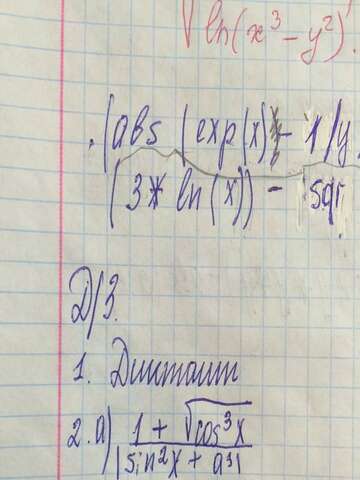 √ln(x³-y²)
.(abs(exp(x)*- 1/y
(3*ln(x)) - sqr
Д/З.
1. Диктант
2. а) 1+√cos³x
|sin²x + a³|